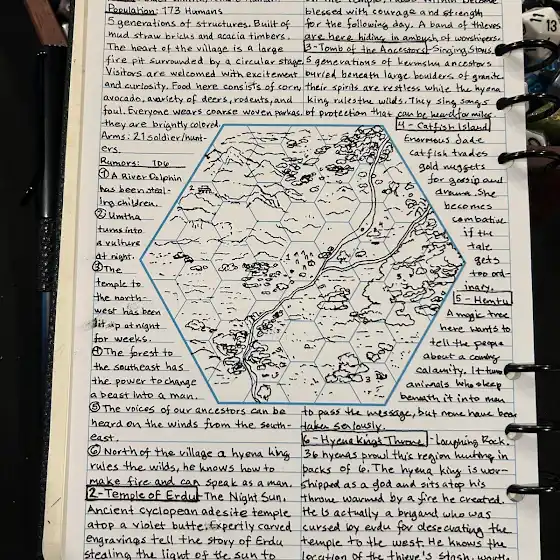 Population: 173 Humans
5 generations of structures. Built of
mud straw bricks and acacia timbers.
The heart of the village is a large
fire pit surrounded by a circular stage.
Visitors are welcomed with excitement
and curiosity. Food here consists of corn,
avocado, a variety of deers, rodents, and
foul. Everyone wears coarse woven parkas.
they are brightly colored.
Arms: 21 soldier/hunt-
ers.
Rumors: 1D6
① A River Dolphin
has been steal-
ing children.
② Umtha
turns into
a vulture
at night.
③ The
temple to
the north-
west has been
lit up at night
for weeks.
④ The forest to
the southeast has
the power to change
a beast into a man.
⑤ The voices of our ancestors can be
heard on the winds from the south-
east.
⑥ North of the village a hyena king
rules the wilds, he knows how to
make fire and can speak as a man.
2-Temple of Erdu The Night Sun.
Ancient cyclopean adesite temple
atop a violet butte. Expertly carved
engravings tell the story of Erdu
stealing the light of the sun to
blessed with courage and strength
for the following day. A band of thieves
are here hiding in ambush of worshipers.
3-Tomb of the Ancestors Singing Stones.
5 generations of kermshu ancestors
buried beneath large boulders of granite
their spirits are restless while the hyena
king rules the wilds. They sing songs
of protection that can be heard for miles
4 - Catfish Island
Enormous Jade
catfish trades
gold nuggets
for gossip and
drama. She
becomes
combative
if the
tale
gets
too ord-
inary.
5 - Hemtu
A magic tree
here wants to
tell the people
about a coming
calamity. It turns
animals who sleep
beneath it into men
to pass the message, but none have been
taken seriously.
6 - Hyena Kings Throne - Laughing Rock.
36 hyenas prowl this region hunting in
packs of 6. The hyena king is wor-
shipped as a god and sits atop his
throne warmed by a fire he created.
He is actually a brigand who was
cursed by erdu for desecrating the
temple to the west. He knows the
location of the thieve's stash, worth